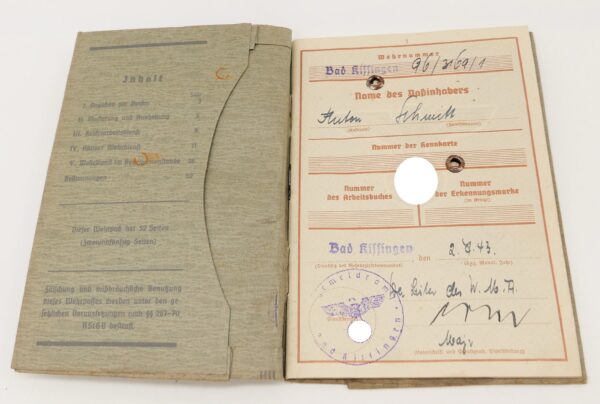 Inhalt
Seite
I. Angaben zur Person 3
II. Musterung und Aushebung 5
III. Reichsarbeitsdienst 8
IV. Aktiver Wehrdienst 11
V. Wehrdienst im Beurlaubtenstande 36
Bestimmungen 52
Dieser Wehrpaß hat 52 Seiten
(Zweiundfünfzig Seiten)
Fälschung und mißbräuchliche Benutzung
dieses Wehrpasses werden unter den ge-
setzlichen Voraussetzungen nach §§ 267-70
RStGB bestraft.
1
Wehrnummer
Bad Kissingen 96/3169/1
Name des Paßinhabers
Anton Schmitt
(Rufname) (Familienname)
Nummer der Kennkarte
Nummer
des Arbeitsbuches
Nummer
der Erkennungsmarke
(im Kriege)
Bad Kissingen, den 2.8.43.
(Tag, Monat, Jahr)
Der Leiter des W.M.A.
Major
Bad Kissingen